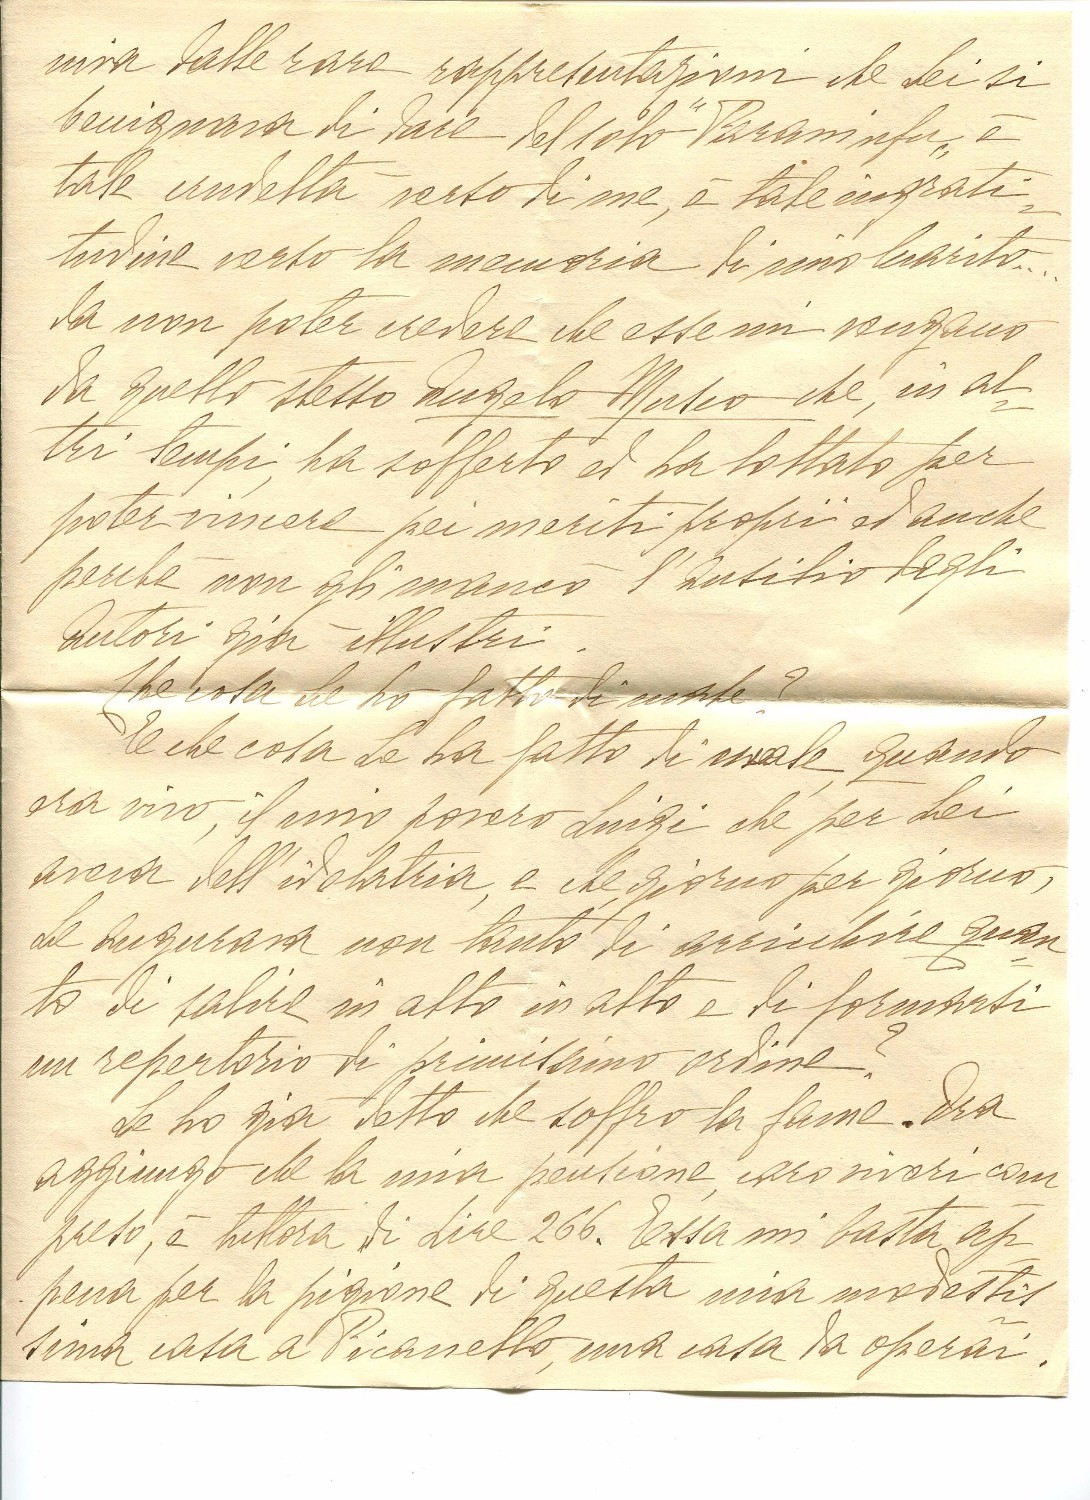 niva dalle rare rappresentazioni che Lei si
benignava di dare del solo "Paraninfu„ è
tale crudeltà verso di me, è tale ingrati=
tudine verso la memoria di mio marito....
da non poter credere che esse mi vengano
da quello stesso Angelo Musco che, in al=
tri tempi, ha sofferto ed ha lottato per
poter vincere pei meriti proprii ed anche
perchè non gli mancò l'ausilio degli
autori già illustri.
Che cosa Le ho fatto di male?
E che cosa Le ha fatto di male, quando
era vivo, il mio povero Luigi che per Lei
aveva dell'idolatria, e che, giorno per giorno,
Le augurava non tanto di arricchire quan
to di salire in alto in alto e di formarsi
un repertorio di primissimo ordine?
Le ho già detto che soffro la fame. Ora
aggiungo che la mia pensione, caro viveri com
preso, è tuttora di Lire 266. Essa mi basta ap
pena per la pigione di questa mia modestis
sima casa a Picanello, una casa da operai.